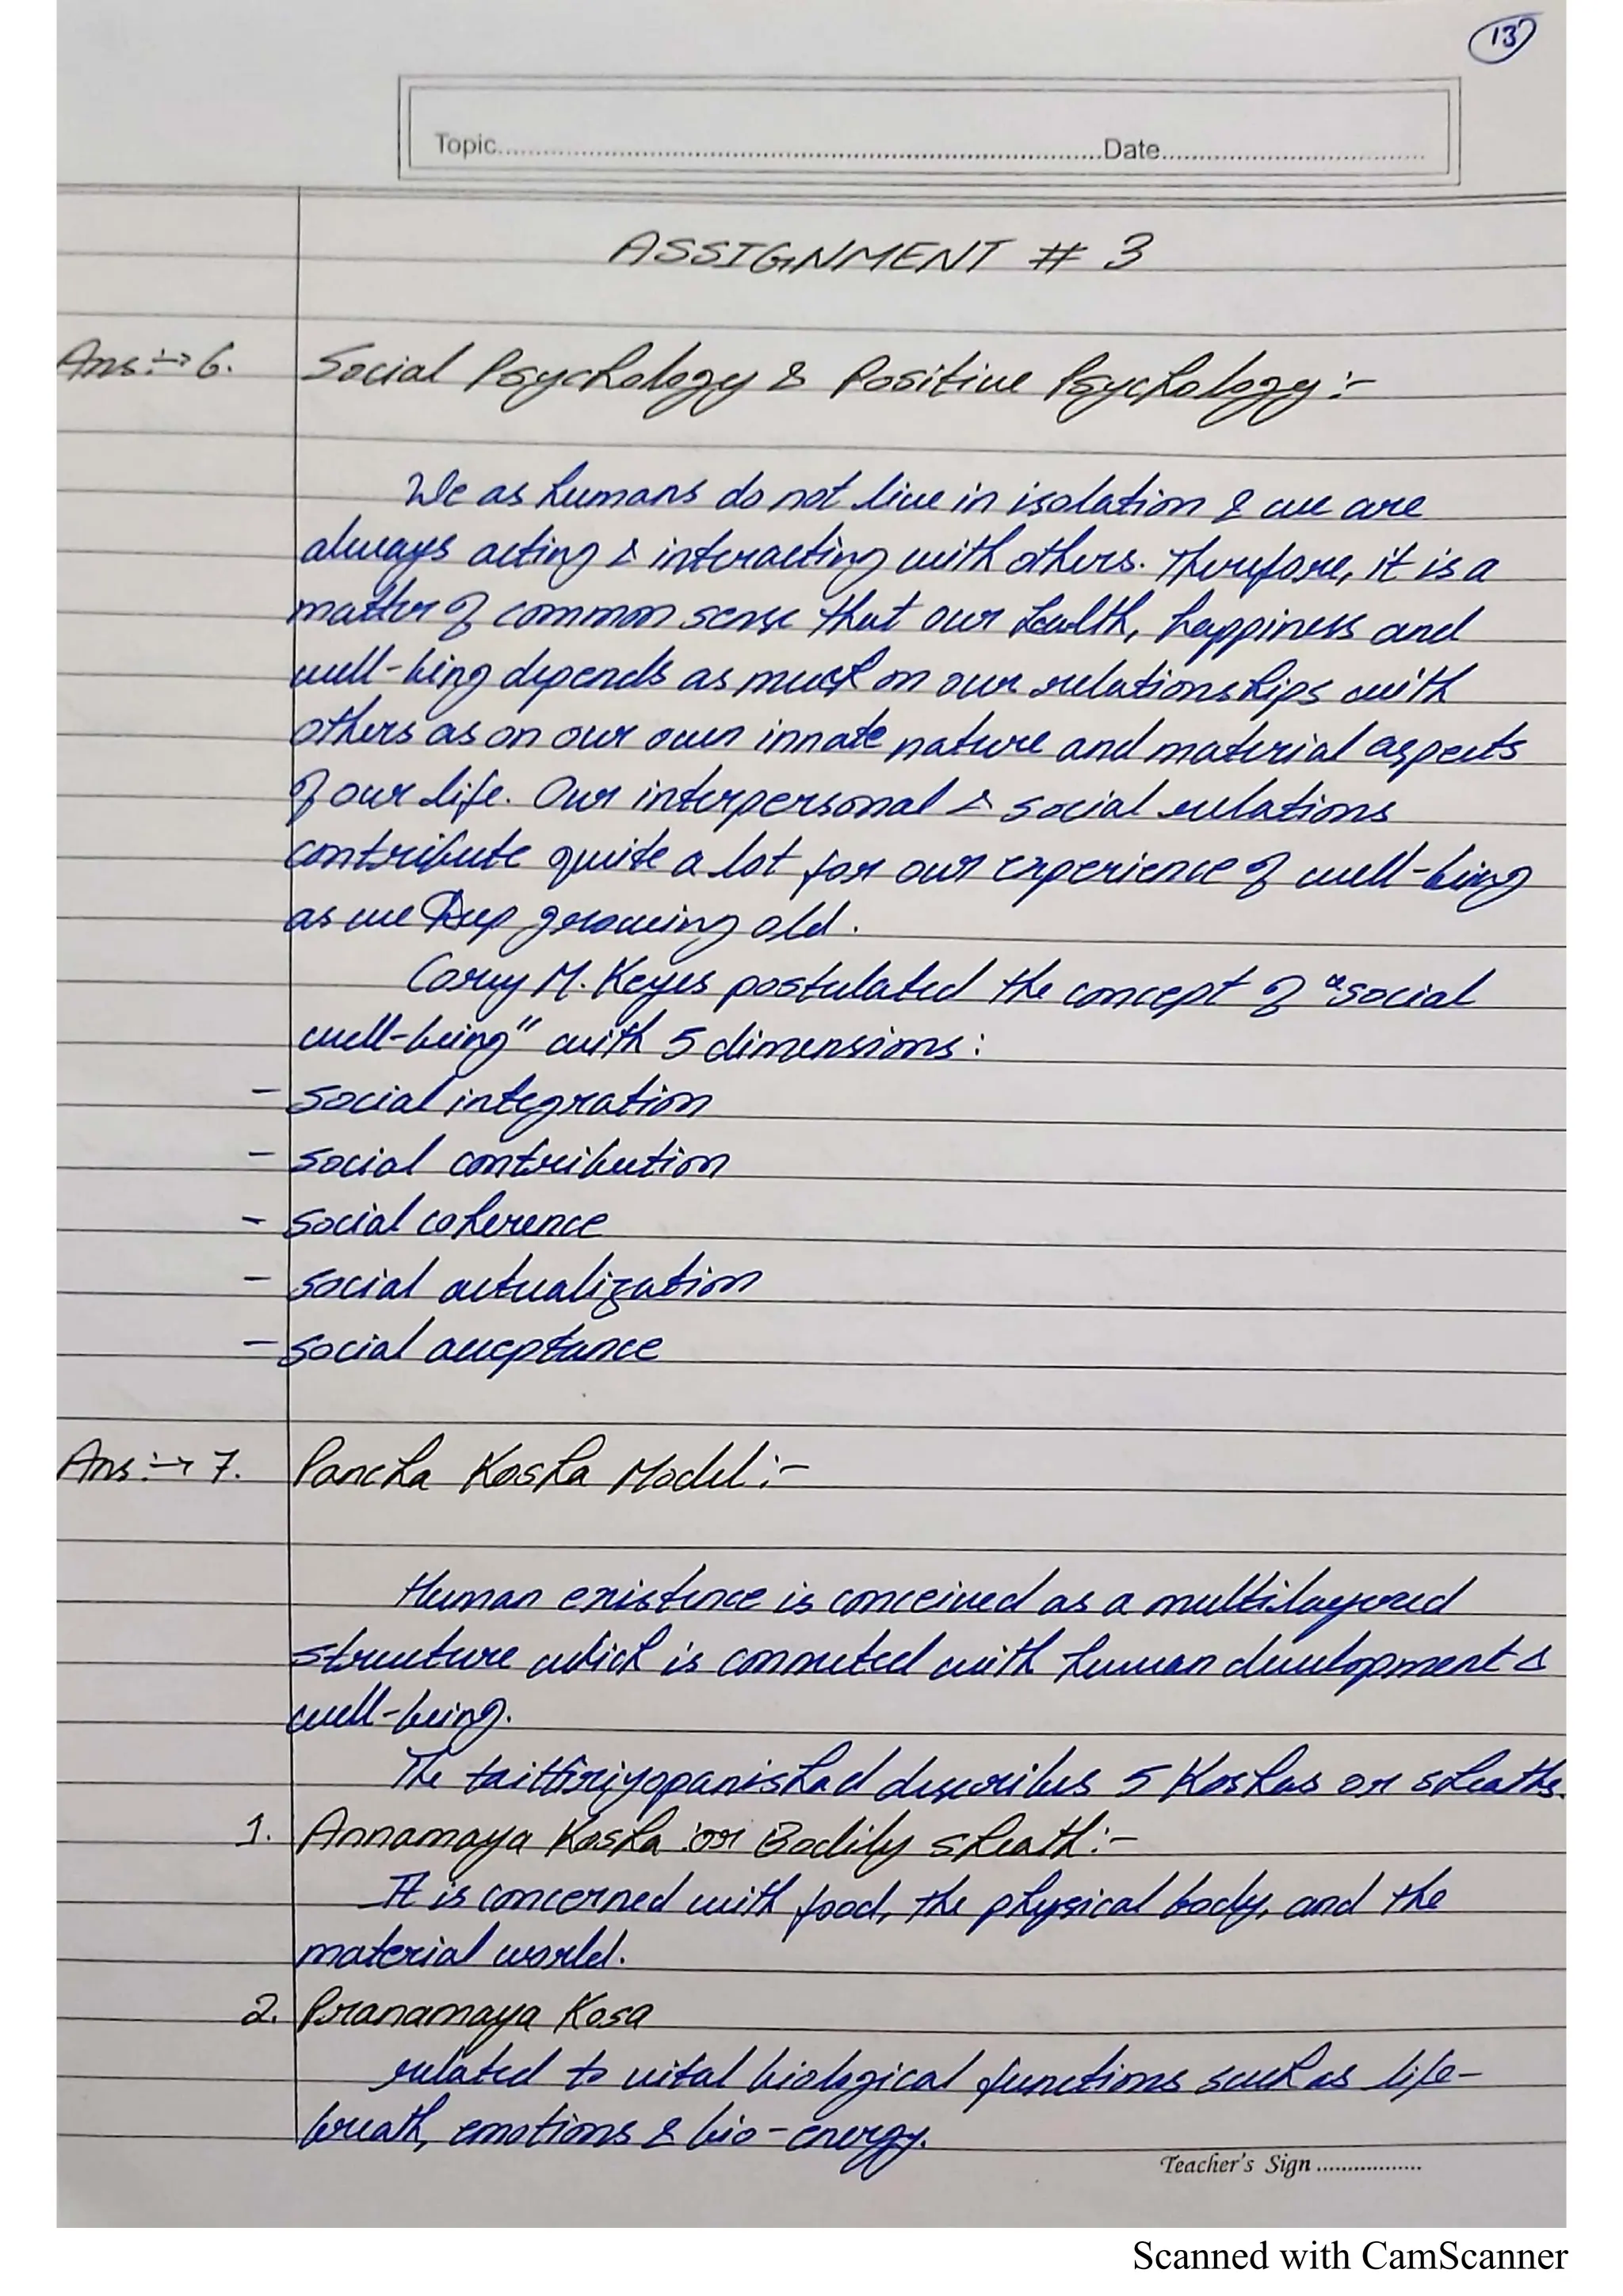 13
Topic..........Date..........
ASSIGNMENT # 3
Ans:→ 6. Social Psychology & Positive Psychology:-
We as humans do not live in isolation & we are
always acting & interacting with others. Therefore, it is a
matter of common sense that our health, happiness and
well-being depends as much on our relationships with
others as on our own innate nature and material aspects
of our life. Our interpersonal & social relations
contribute quite a lot for our experience of well-being
as we keep growing old.
Corey M. Keyes postulated the concept of "social
well-being" with 5 dimensions:
- social integration
- social contribution
- social coherence
- social actualization
- social acceptance
Ans:→ 7. Pancha Kosha Model:-
Human existence is conceived as a multilayered
structure which is connected with human development &
well-being.
The taittiriyopanishad describes 5 Koshas or sheaths.
1. Annamaya Kosha or Bodily sheath:-
It is concerned with food, the physical body, and the
material world.
2. Pranamaya Kosa
related to vital biological functions such as life-
breath, emotions & bio-energy.
Teacher's Sign..........
Scanned with CamScanner